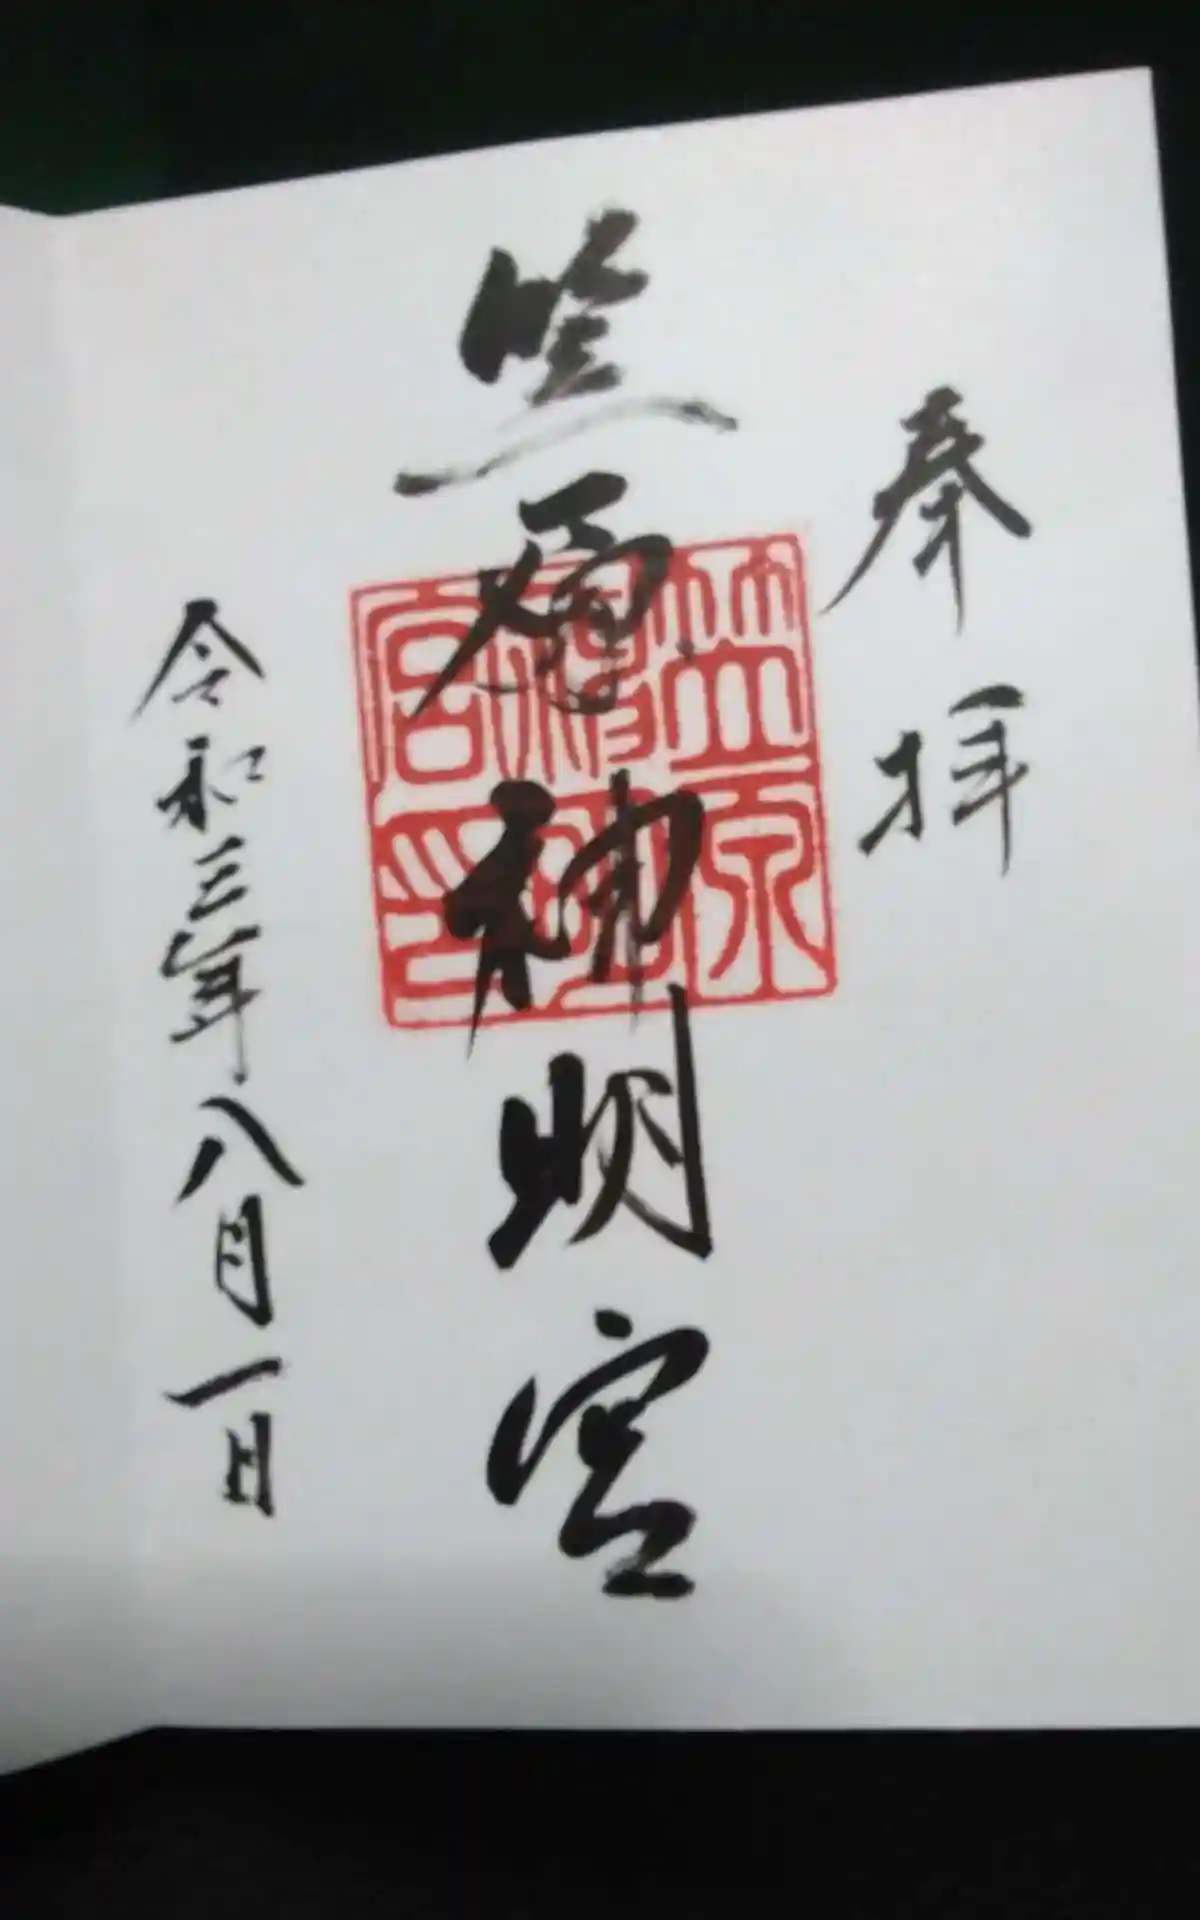 奉拝
笠原神明宮
笠原
神明
宮印
令和三年八月一日